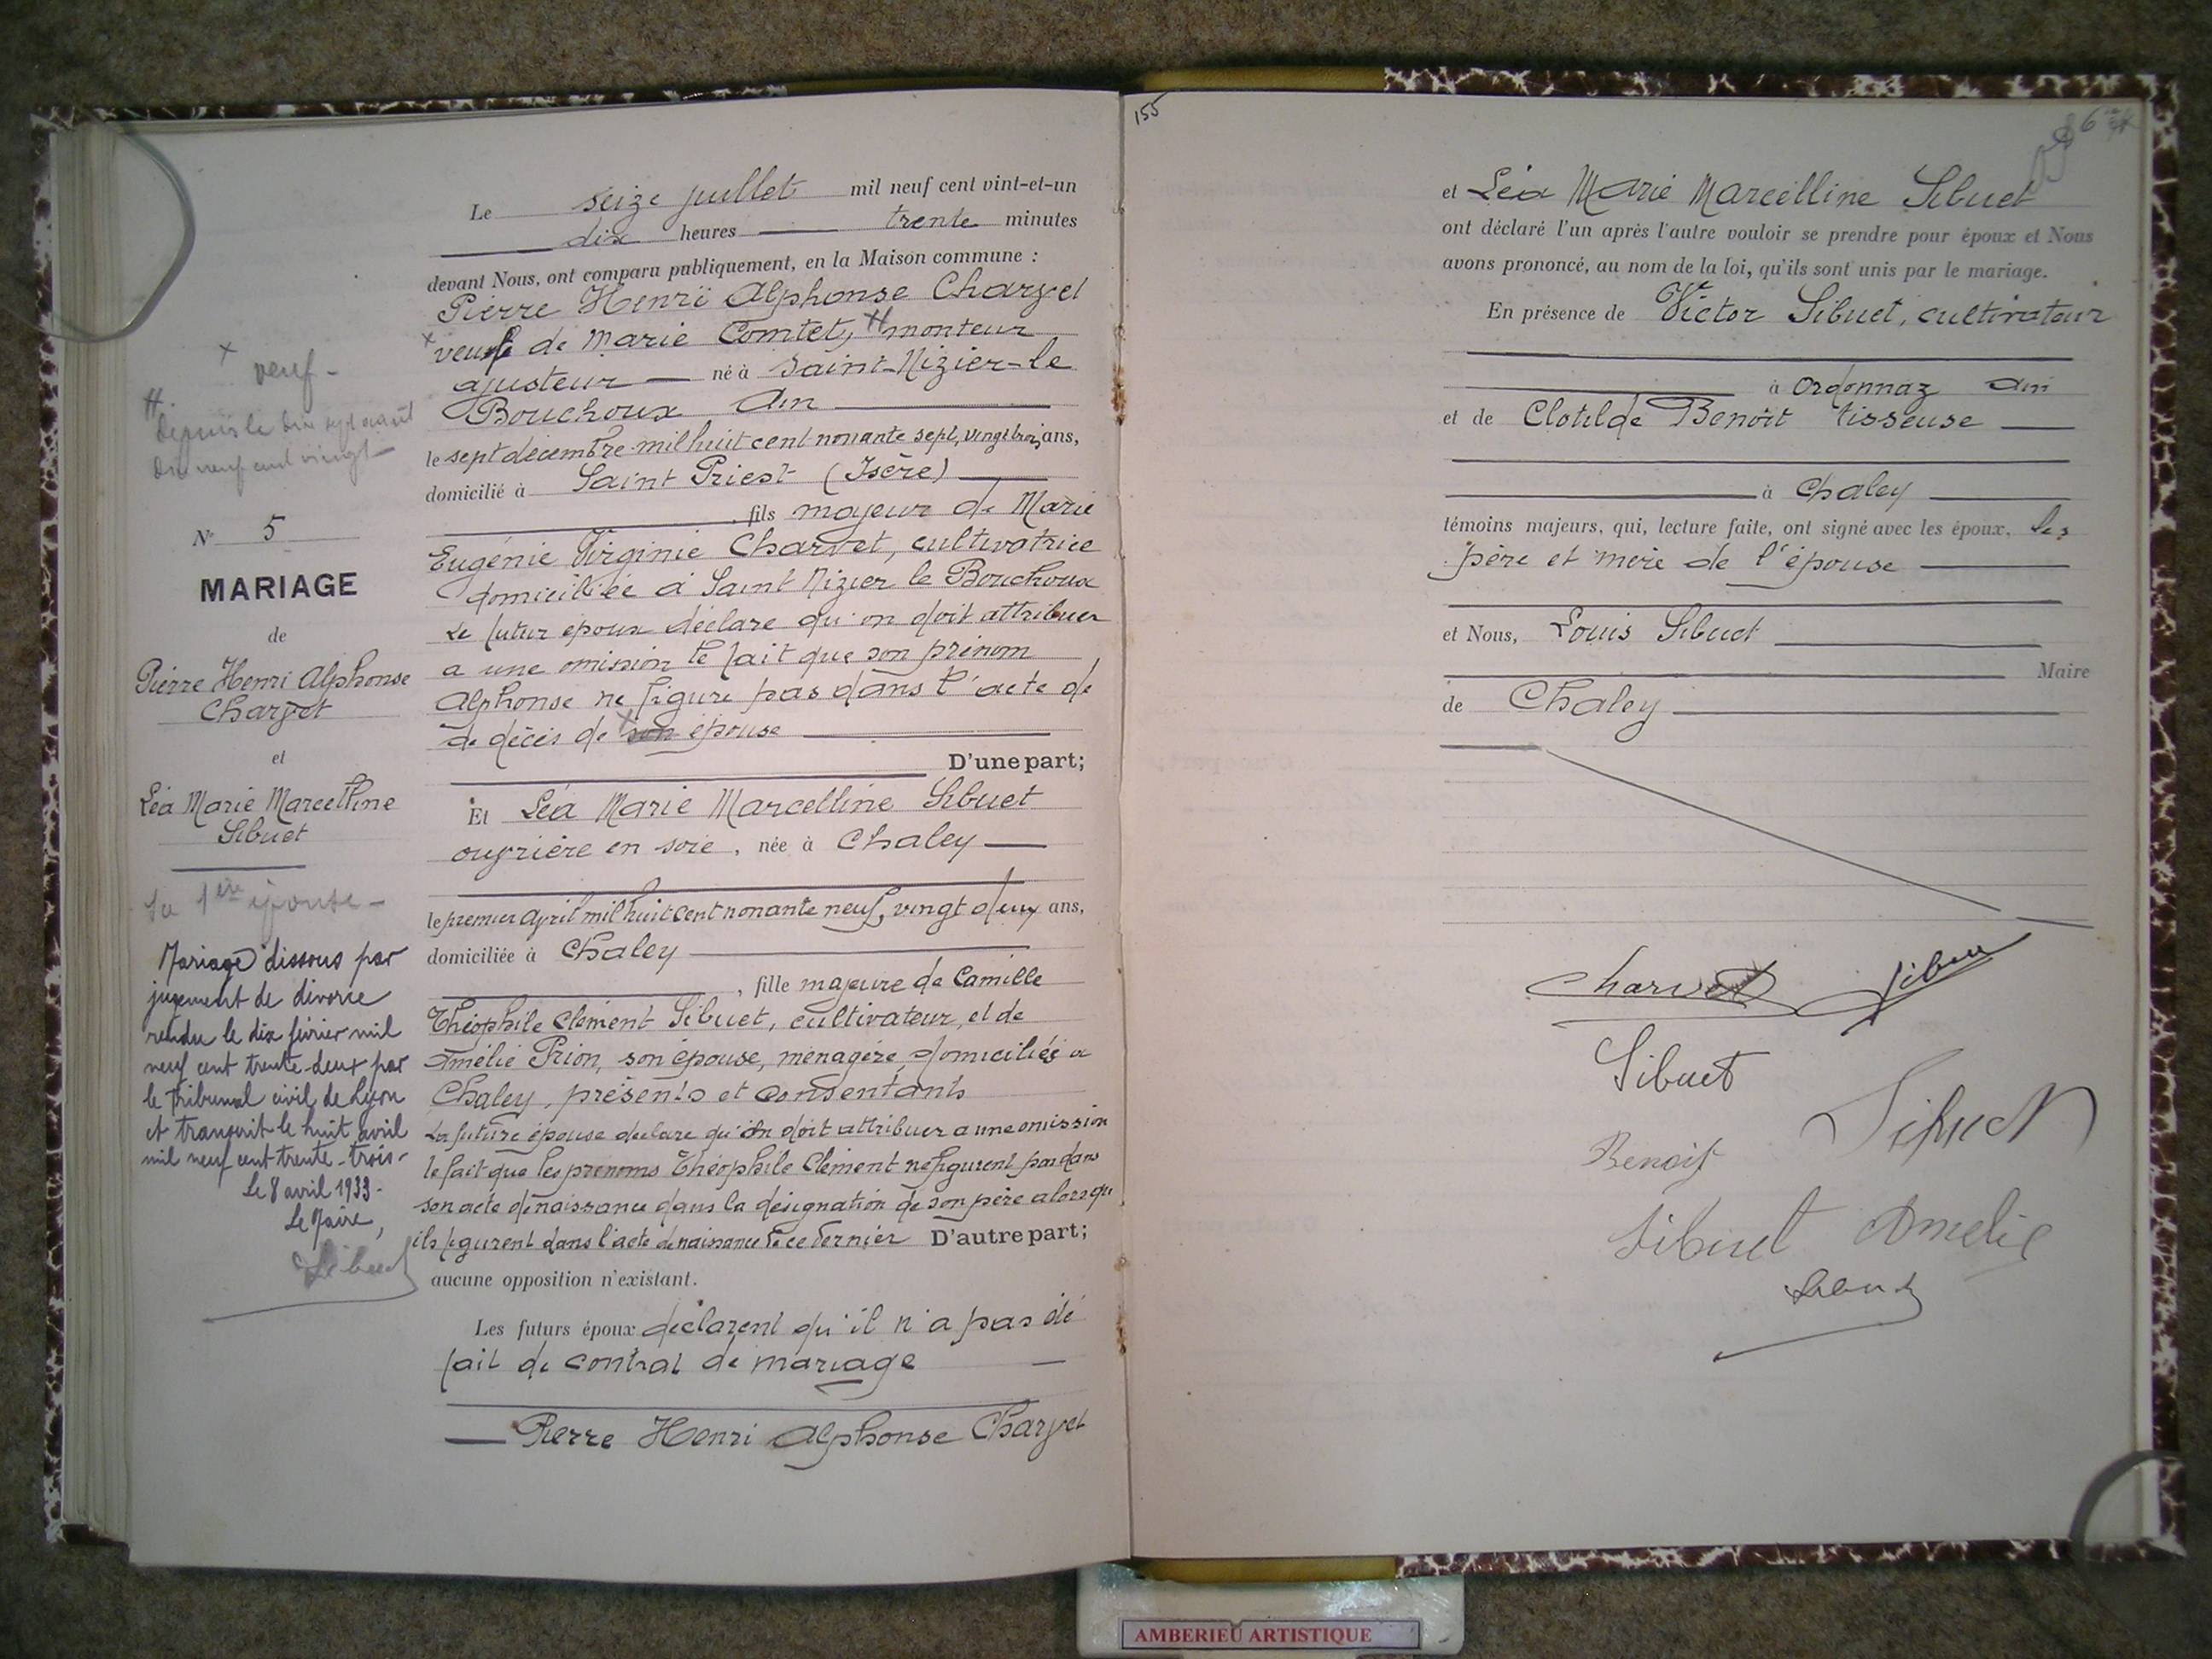 Le seize juillet mil neuf cent vint-et-un
dix heures trente minutes
devant Nous, ont comparu publiquement, en la Maison commune :
Pierre Henri Alphonse Charvet
x veuf de Marie Comtet, # monteur
ajusteur — né à Saint-Nizier-le
Bouchoux Ain
le sept décembre mil huit cent nonante sept, vingt trois ans,
domicilié à Saint Priest (Isère)
, fils majeur de Marie
Eugénie Virginie Charvet, cultivatrice
domiciliée à Saint Nizier le Bouchoux
Le futur époux déclare qu'on doit attribuer
a une omission le fait que son prénom
Alphonse ne figure pas dans l'acte de
de décès de x son épouse
D'une part;
Et Léa Marie Marcelline Sibuet
ouvrière en soie, née à Chaley
le premier avril mil huit cent nonante neuf, vingt deux ans,
domiciliée à Chaley
, fille majeure de Camille
Théophile Clément Sibuet, cultivateur, et de
Amélie Prion, son épouse, ménagère, domiciliés a
Chaley, présents et consentants
La future épouse déclare qu'on doit attribuer a une omission
le fait que les prénoms Théophile Clément ne figurent pas dans
son acte de naissance dans la désignation de son père alors qu
ils figurent dans l'acte de naissance de ce dernier D'autre part;
aucune opposition n'existant.
Les futurs époux déclarent qu'il n'a pas été
fait de contrat de mariage —
— Pierre Henri Alphonse Charvet
x veuf -
#
depuis le
dix neuf cent vingt -
No 5
MARIAGE
de
Pierre Henri Alphonse
Charvet
et
Léa Marie Marcelline
Sibuet
sa 1ère épouse -
Mariage dissous par
jugement de divorce
rendu le dix février mil
neuf cent trente-deux par
le tribunal civil de Lyon
et transcrit le huit avril
mil neuf cent trente-trois-
Le 8 avril 1933-
Le Maire,
Sibuet
155
6
et Léa Marie Marcelline Sibuet
ont déclaré l'un après l'autre vouloir se prendre pour époux et Nous
avons prononcé, au nom de la loi, qu'ils sont unis par le mariage.
En présence de Victor Sibuet, cultivateur
à Ordonnaz Ain
et de Clotilde Benoit tisseuse
à Chaley
témoins majeurs, qui, lecture faite, ont signé avec les époux, les
père et mère de l'épouse
et Nous, Louis Sibuet
Maire
de Chaley
Charvet Sibuet
Sibuet
Sibuet
Benoit
Sibuet Amélie
Sibuet
AMBERIEU ARTISTIQUE